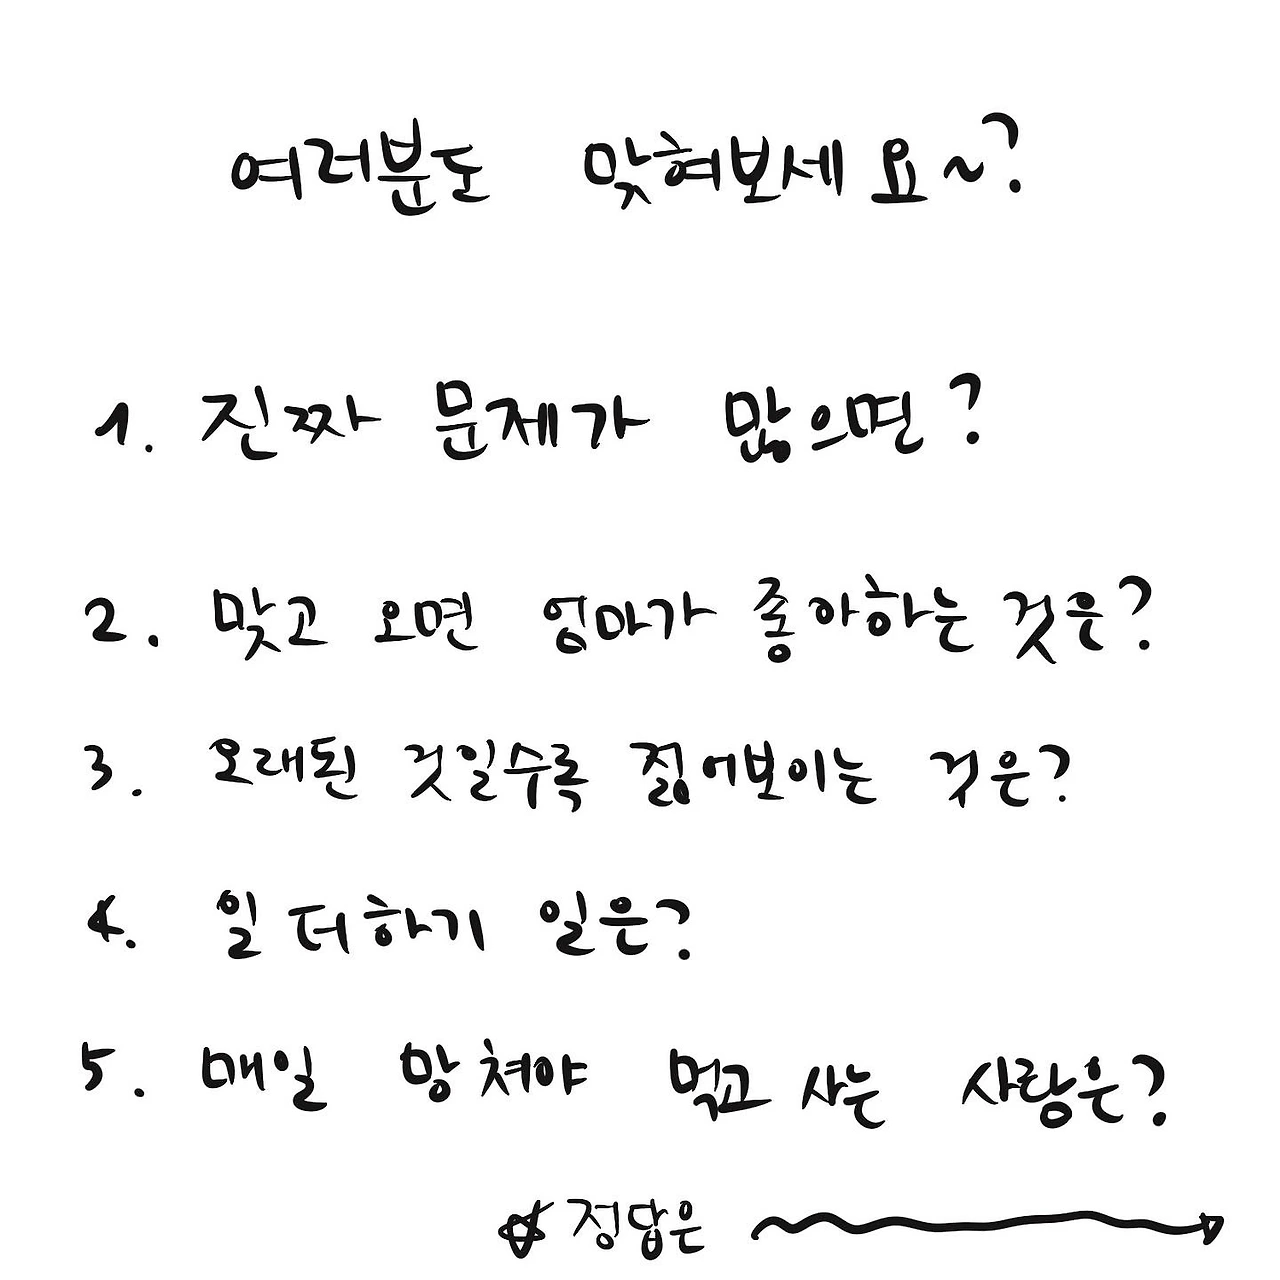 여러분도 맞혀보세요~?
1. 진짜 문제가 많으면?
2. 맞고 오면 엄마가 좋아하는 것은?
3. 오래된 것일수록 젊어보이는 것은?
4. 일 더하기 일은?
5. 매일 망쳐야 먹고 사는 사람은?
☆ 정답은